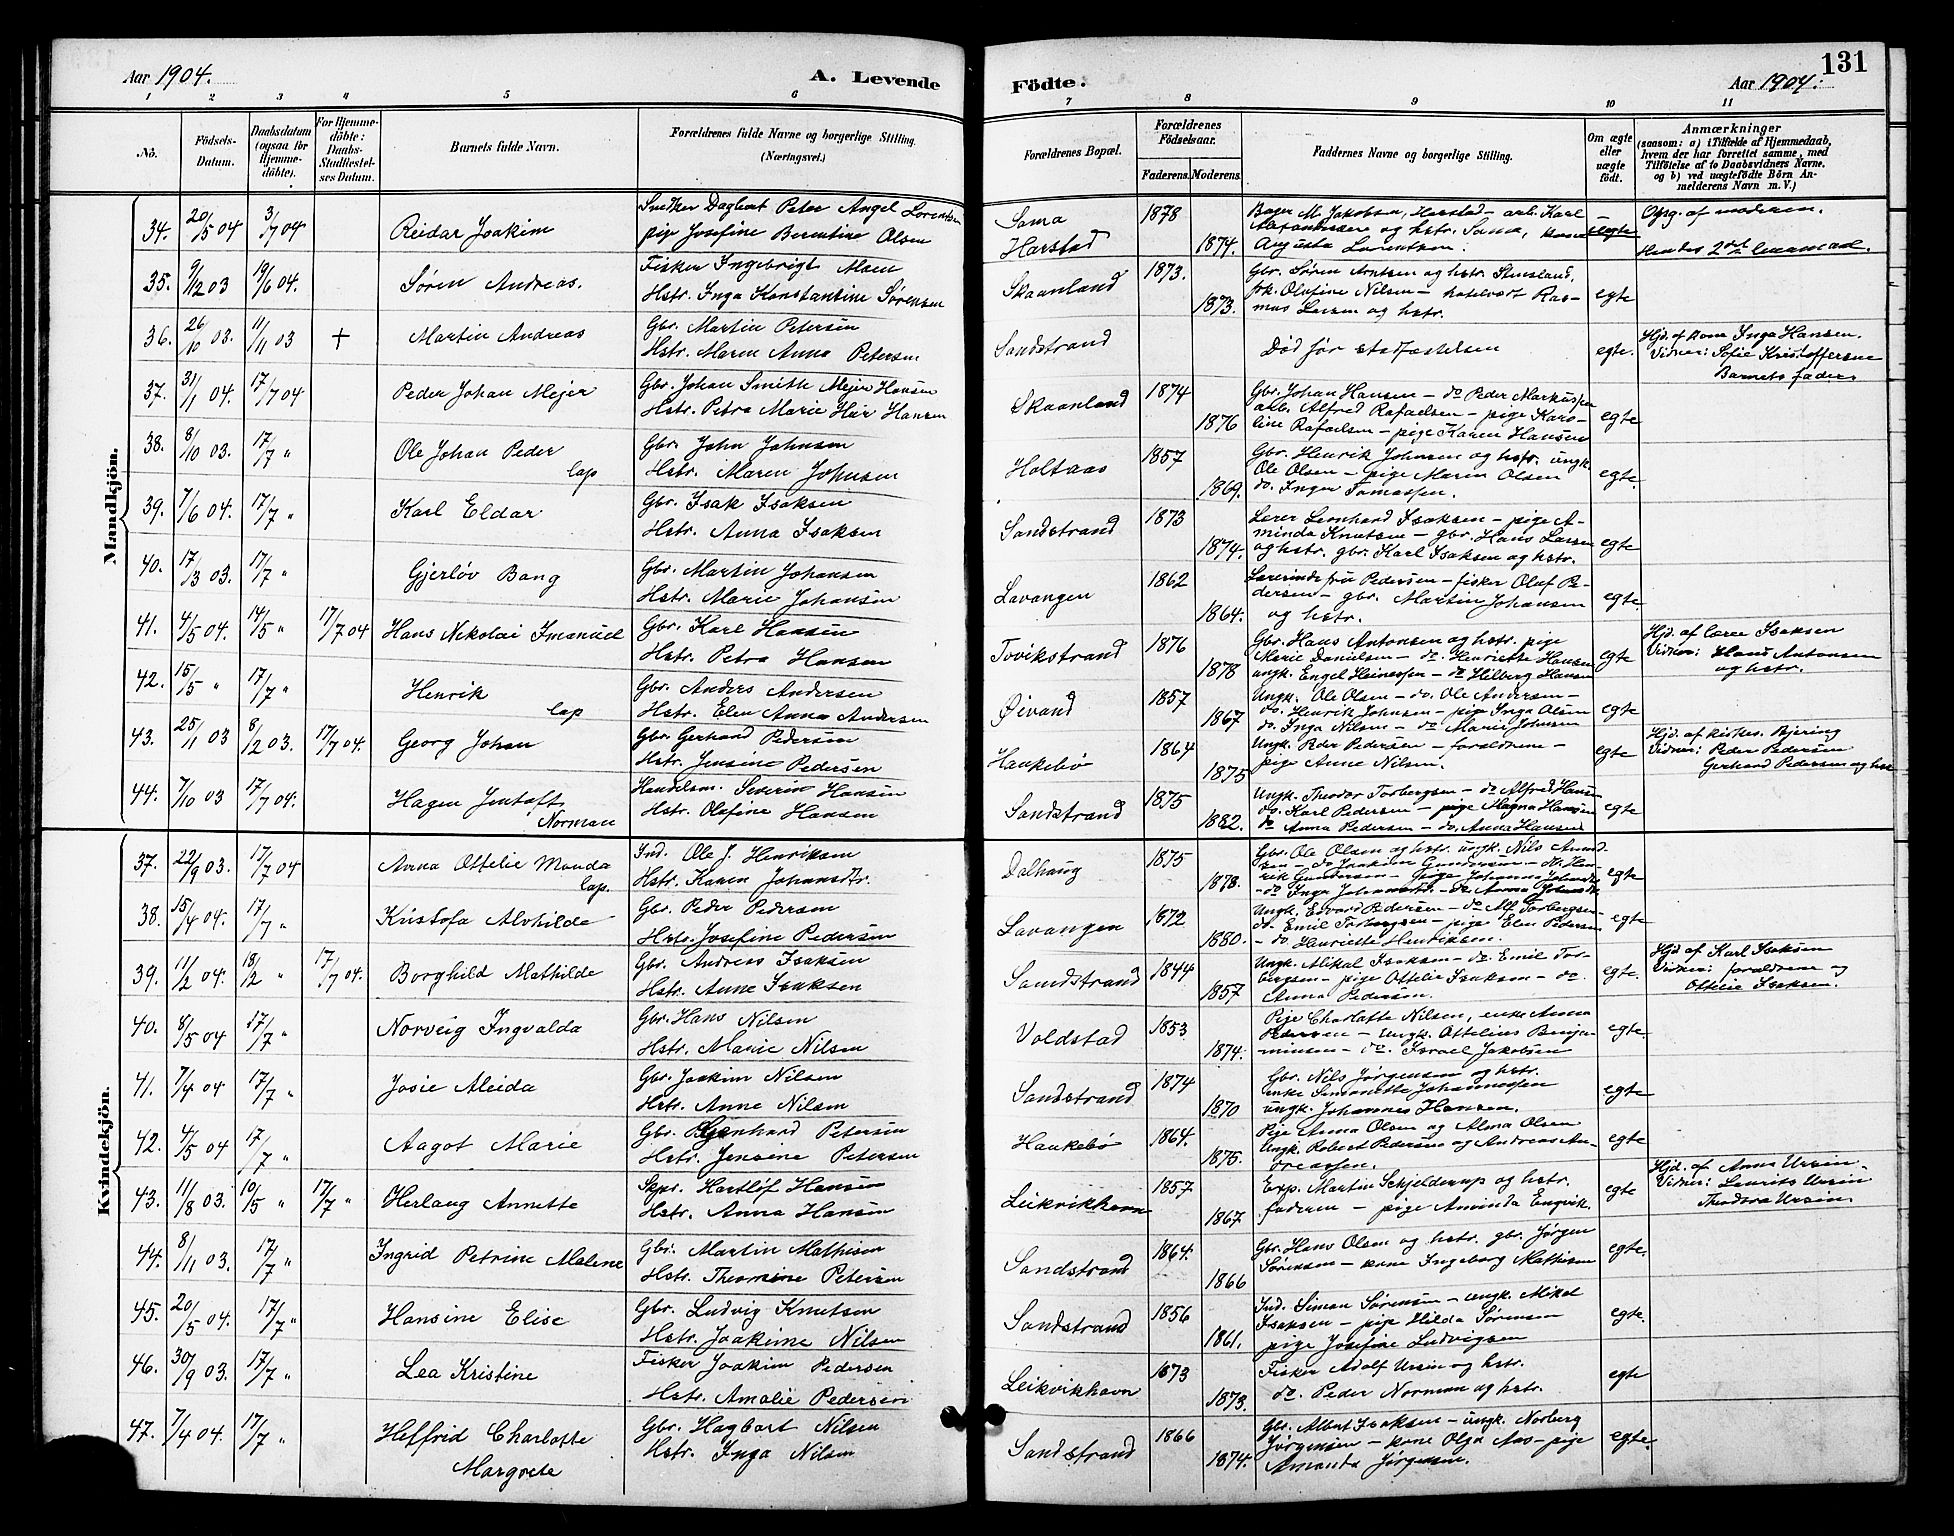 Aar 1904.
A. Levende
Födte.
Aar 1904.
131
1 2 3 4 5 6 7 8 9 10 11
No.
Födsels-
Datum.
Daabsdatum
(ogsaa för
Hjemme-
döbte).
For Hjemme-
döbte:
Daabs-
Stadfæstel-
ses Datum.
Barnets fulde Navn.
Forældrenes fulde Navne og borgerlige Stilling.
(Næringsvei.)
Forældrenes Bopæl.
Forældrenes
Födselsaar.
Faderens. Moderens.
Faddernes Navne og borgerlige Stilling.
Om ægte
eller
uægte
födt.
Anmærkninger
(saasom: a) i Tilfælde af Hjemmedaab,
hvem der har forrettet samme, med
Tilföielse af to Daabsvidners Navne.
og b) ved uægtefödte Börn An-
melderens Navn m. V.)
Mandkjön.
34. 20/5 04 3/7 04 Reidar Joakim
Snedker Dagbert Peter Angel Lorentsen
pige Josefine Berentine Olsen
Sama
Harstad
1878
1874.
Bager M. Jakobsen, Harstad – arb. Karl
og hstr. Sama,
Augusta Lorentsen.
Opg. af moderen.
Hendes 2det leiermaal
35. 9/12 03 19/6 04. Søren Andreas.
Fisker Ingebrigt Moen
Hstr. Inga Konstantine Sørensen
Skaanland
1873.
1873.
Gbr. Søren Arntsen og hstr. Stinesland,
frk. Olufine Nilsen – hotelvært Ras-
mus Larsen og hstr.
egte
36. 26/10 03. 11/11 03 + Martin Andreas
Gbr. Martin Petersen
Hstr. Maren Anna Petersen
Sandstrand
Död før stadfæstelsen
egte.
Hjd. af kone Inga Hansen.
Vidner: Sofie Kristoffersen
Barnets fader.
37. 31/1 04. 17/7 04 Peder Johan Mejer
Gbr. Johan Smith Mejer Hansen
Hstr. Petra Marie Hansen
Skaanland
1874
1876
Gbr. Johan Hansen – do Peder Markussen
arb. Alfred Rafaelsen – pige Karo-
line Rafaelsen – pige Karen Hansen
egte
38. 8/10 03. 17/7 " Ole Johan Peder
lap
Gbr. John Johnsen
Hstr. Maren Johnsen
Holtaas
1857
1869.
Gbr. Henrik Johnsen og hstr. ungk.
Ole Olsen – pige Maren Olsen
do. Inger Tomassen.
egte.
39. 7/6 04. 17/7 " Karl Eldar
Gbr. Isak Isaksen
Hstr. Anna Isaksen
Sandstrand
1873
1874.
Lærer Leonhard Isaksen – pige A-
minda Knutsen – gbr. Hans Larsen
og hstr. gbr. Karl Isaksen og hstr.
egte
40. 17/13 03. 17/7 " Gjerløv Bang
Gbr. Martin Johansen
Hstr. Marie Johansen
Lavangen
1862
1864.
Lærerinde fru Pedersen – fisker Olaf Pe-
dersen – gbr. Martin Johansen
og hstr.
egte
41. 4/5 04. 14/5 " 17/7 04 Hans Nikolai Imanuel
Gbr. Karl Hansen
Hstr. Petra Hansen
Tovikstrand
1876
1878
Gbr. Hans Antonsen og hstr. pige
Marie Danielsen – do Henriette Hansen
ungk. Engel Heinessen – do Helberg Hansen
egte
Hjd. af lærer Isaksen
Vidner: Hans Antonsen
og hstr.
42. 15/5 " 17/7 " Henrik
lap
Gbr. Anders Andersen
Hstr. Elen Anna Andersen
Øivand
1857
1867
Ungk. Ole Olsen – do. Ole Andersen –
do. Henrik Johnsen – pige Inga Olsen
do. Inga Nilsen – do Marie Johnsen
egte
43. 25/11 03 8/12 03. 17/7 04. Georg Johan
Gbr. Gerhard Pedersen
Hstr. Jensine Pedersen
Haukebø
1864
1875
Ungk. Peder Pedersen – forældrene –
pige Anne Nilsen.
egte
Hjd. af kirkes. Bjering
Vidner: Peder Pedersen
Gerhard Pedersen og hstr
44. 7/10 03 17/7 04. Hagen Jentoft
Norman
Handelsm. Severin Hansen
Hstr. Olufine Hansen
Sandstrand
1875
1882.
Ungk. Theodor Torbergsen – do Alfred Hansen
do. Karl Pedersen – pige Magna Hansen
do Anna Pedersen – do. Anna Hansen
egte
Kvindekjön.
37. 22/9 03. 17/7 04 Anna Ottelie Manda
lap.
Ind. Ole J. Henriksen
Hstr. Karen Johansdtr.
Dalhaug
1875
1878.
Gbr. Ole Olsen og hstr. ungk. Nils Amund-
sen – do Joakim Gundersen – do. Hen-
rik Gundersen – Pige Johanna
do Inga – do Anna
egte
38. 15/4 04. 17/7 " Kristofa Alvhilde
Gbr. Peder Pedersen
Hstr. Josefine Pedersen
Lavangen
1872
1880.
Ungk. Edvard Pedersen – do Alf Torbergsen –
do. Emil Torbergsen – pige Elen Pedersen
– do Henriette Henriksen.
egte
39. 11/2 04. 18/2 " 17/7 04. Borghild Mathilde
Gbr. Andreas Isaksen
Hstr. Anne Isaksen
Sandstrand
1844
1857
Ungk. Mikal Isaksen – do. Emil Tor-
bergsen – pige Ottelie Isaksen – do.
Anna Pedersen.
egte.
Hjd. af Karl Isaksen
Vidner: forældrene og
Ottelie Isaksen.
40. 8/5 04 17/7 " Norveig Ingvalda
Gbr. Hans Nilsen
Hstr. Marie Nilsen
Voldstad
1853
1874.
Pige Charlotte Nilsen, enke Anna
Pedersen – Ungk. Ottelius Benja-
minsen – do. Israel Jakobsen
egte
41. 7/4 04 17/7 " Josie Aleida
Gbr. Joakim Nilsen
Hstr. Anne Nilsen
Sandstrand
1874
1870
Gbr. Nils Jørgensen og hstr.
enke Simonette Johannessen
ungk. Johannes Hansen.
egte
42. 4/5 04 17/7 " Aagot Marie
Gbr. Petersen
Hstr. Jensine Petersen
Haukebø
1864.
1875.
Pige Anna Olsen og Alma Olsen
Ungk. Robert Pedersen og Andreas An-
dreassen.
egte
43. 11/8 03. 10/5 " 17/7 " Herlaug Annette
Skpr. Hartløf Hansen
Hstr. Anna Hansen
Leikvikhavn
1857
1867
Exp. Martin Schjelderup og hstr.
faderen – pige Aminda Engvik.
egte
Hjd. af Anna Ursin.
Vidner: Laurits Ursin
Theodora Ursin.
44. 8/11 03. 17/7 " Ingrid Petrine Malene
Gbr. Martin Mathisen
Hstr. Thomine Petersen
Sandstrand
1864.
1866
Gbr. Hans Olsen og hstr. gbr. Jørgen
Sørensen – kone Ingeborg Mathisen
egte
45. 20/5 04. 17/7 " Hansine Elise
Gbr. Ludvig Knutsen
Hstr. Joakime Nilsen
Sandstrand
1856
1861.
Ind. Simon Sørensen – ungk. Mikal
Isaksen – pige Hilda Sørensen
pige Josefine Ludvigsen
egte.
46. 30/9 03. 17/7 " Lea Kristine
Fisker Joakim Pedersen
Hstr. Amalie Pedersen
Leikvikhavn
1873
1873.
Fisker Adolf Ursin og hstr.
do. Peder Norman og hstr.
egte
47. 7/4 04. 17/7 " Heffrid Charlotte
Margrete
Gbr. Hagbart Nilsen
Hstr. Inga Nilsen
Sandstrand
1866
1874.
Gbr. Albert Isaksen – ungk. Norberg
Jørgensen – kone Olga Aas – pige
Amanda Jørgensen.
egte.